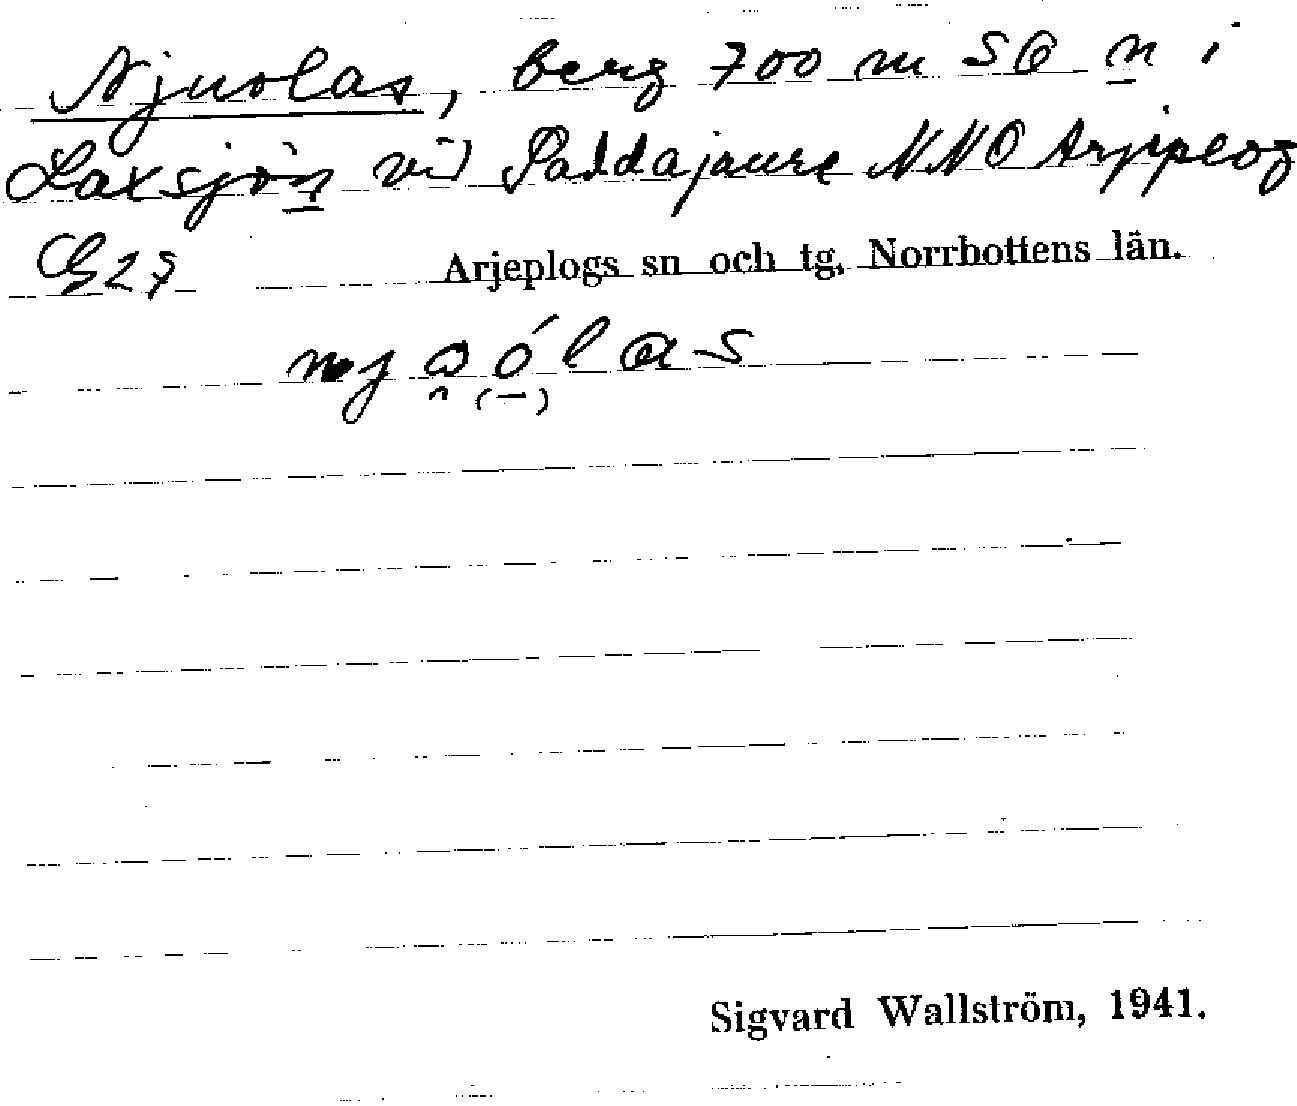 Njuolas, berg 700 m SO n i
Laxsjön vid Paddajaure NNO Arjeplog
G27 Arjeplogs sn och tg, Norrbottens län.
Sigvard Wallström, 1941.